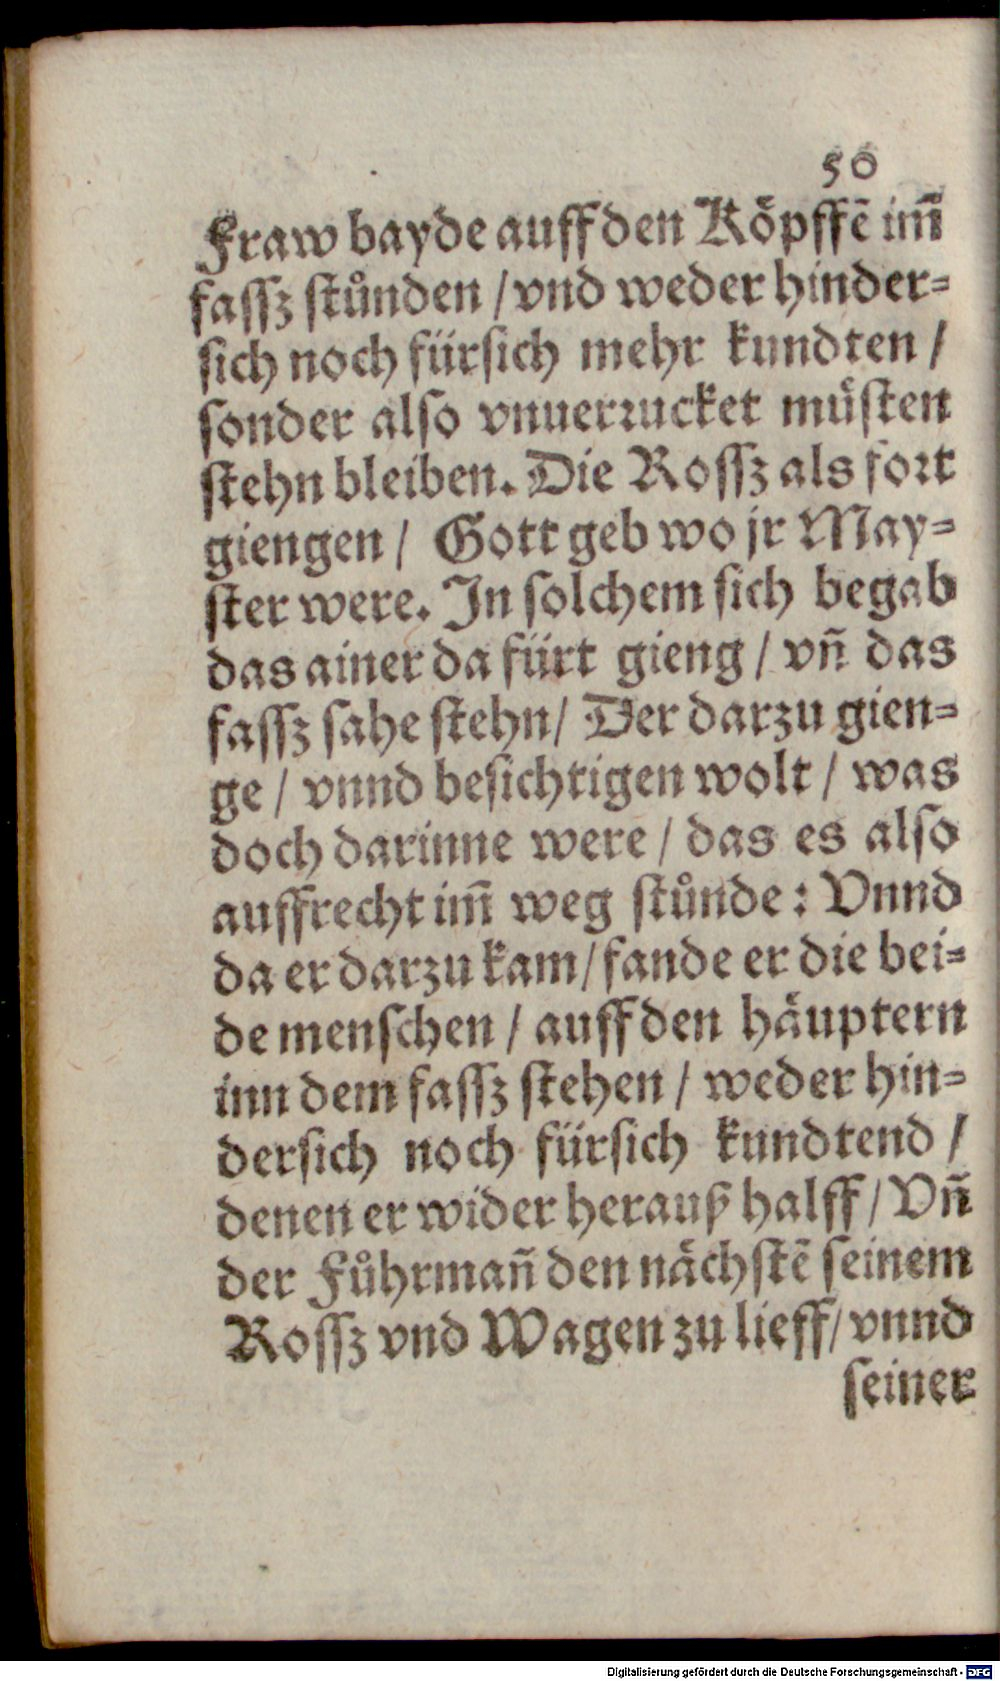 50
Fraw bayde auff den Köpffẽ im̃
fassz stůnden / vnd weder hinder=
sich noch fürsich mehr kundten /
sonder also vnuerrucket můsten
stehn bleiben. Die Rossz als fort
giengen / Gott geb wo jr May=
ster were. In solchem sich begab
das ainer da fürt gieng / vñ das
fassz sahe stehn / Der darzu gien=
ge / vnnd besichtigen wolt / was
doch darinne were / das es also
auffrecht im̃ weg stůnde : Vnnd
da er darzu kam / fande er die bei=
de menschen / auff den häuptern
inn dem fassz stehen / weder hin=
dersich noch fürsich kundtend /
denen er wider herauß halff / Vñ
der Fůhrmañ den nächstẽ seinem
Rossz vnd Wagen zu lieff / vnnd
seiner
Digitalisierung gefördert durch die Deutsche Forschungsgemeinschaft - DFG